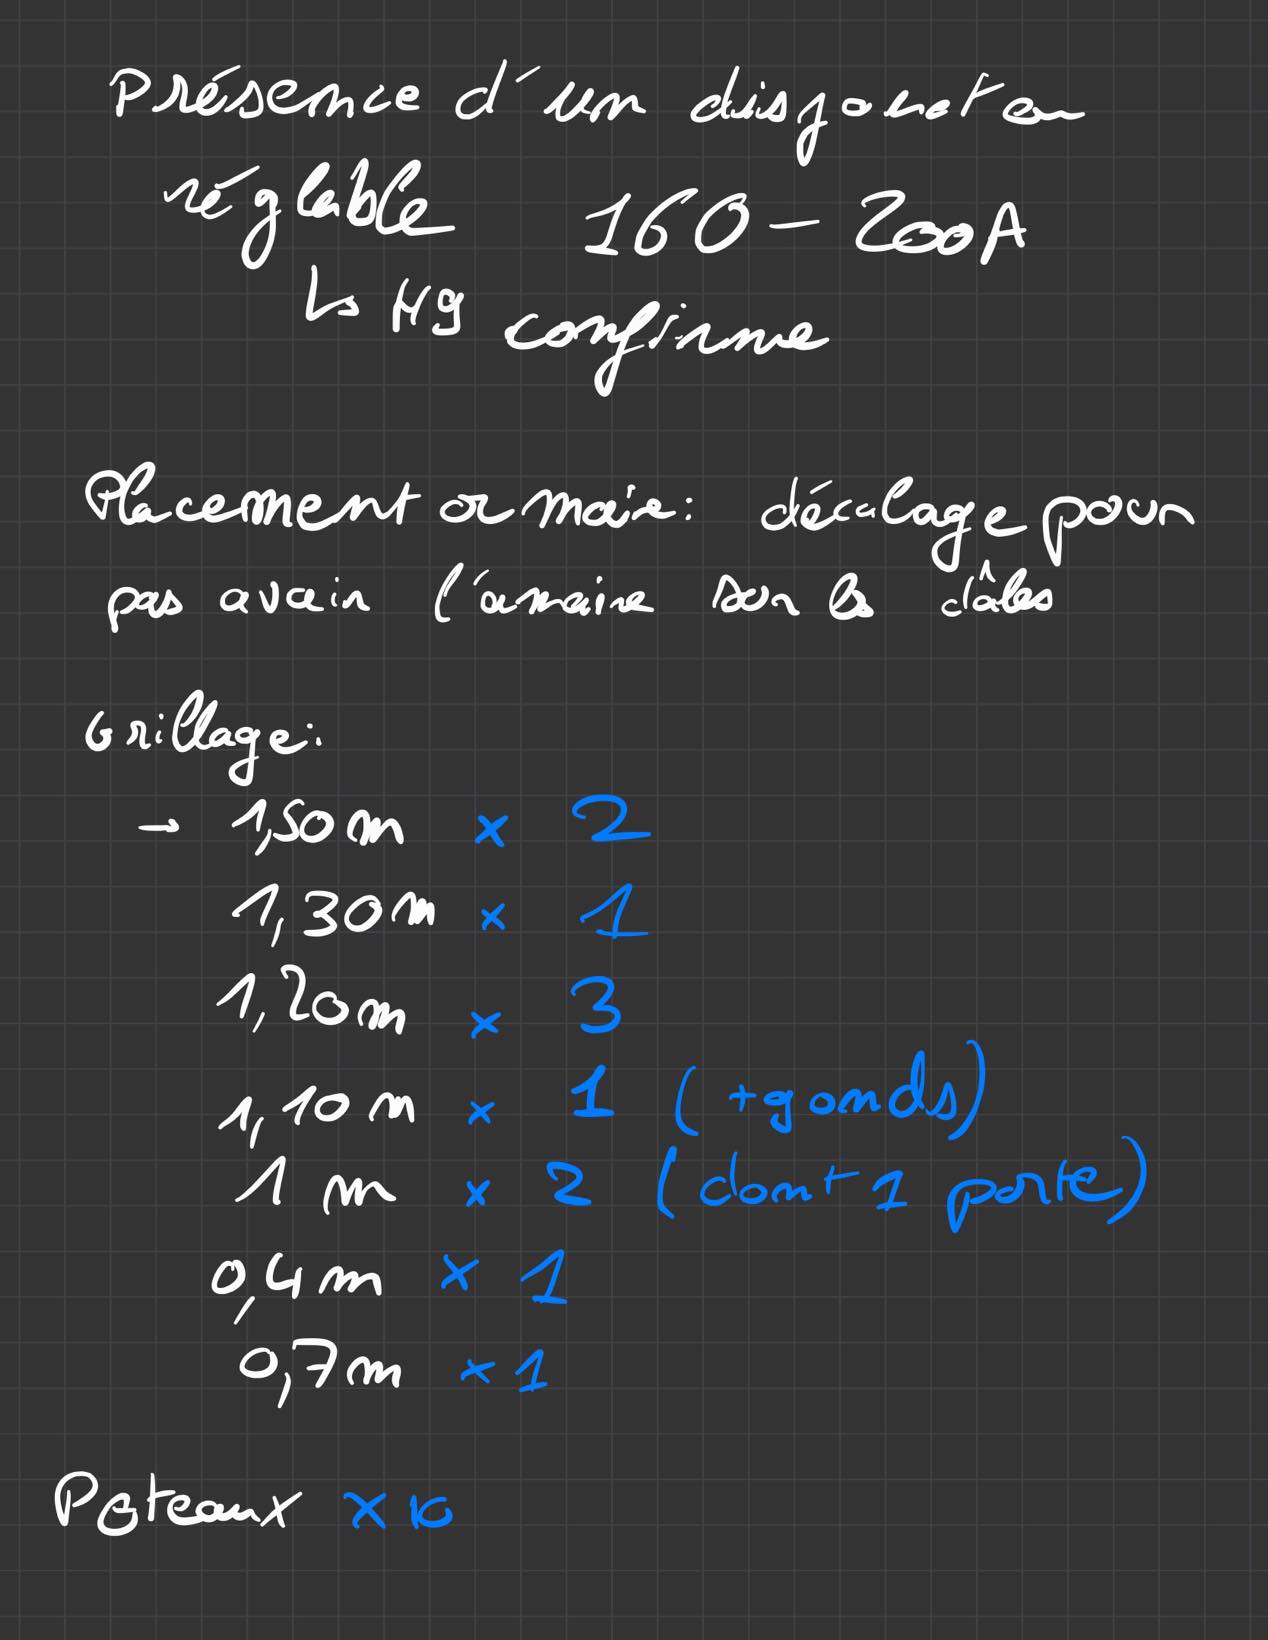 Présence d'un disjoncteur
réglable 160 - 200A
↳ Hg confirme
Placement armoire : décalage pour
pas avoir l'armoire sur les dâles
Grillage :
→ 1,50 m x 2
1,30 m x 1
1,20 m x 3
1,10 m x 1 (+gonds)
1 m x 2 (dont 1 porte)
0,4 m x 1
0,7 m x 1
Poteaux x 10